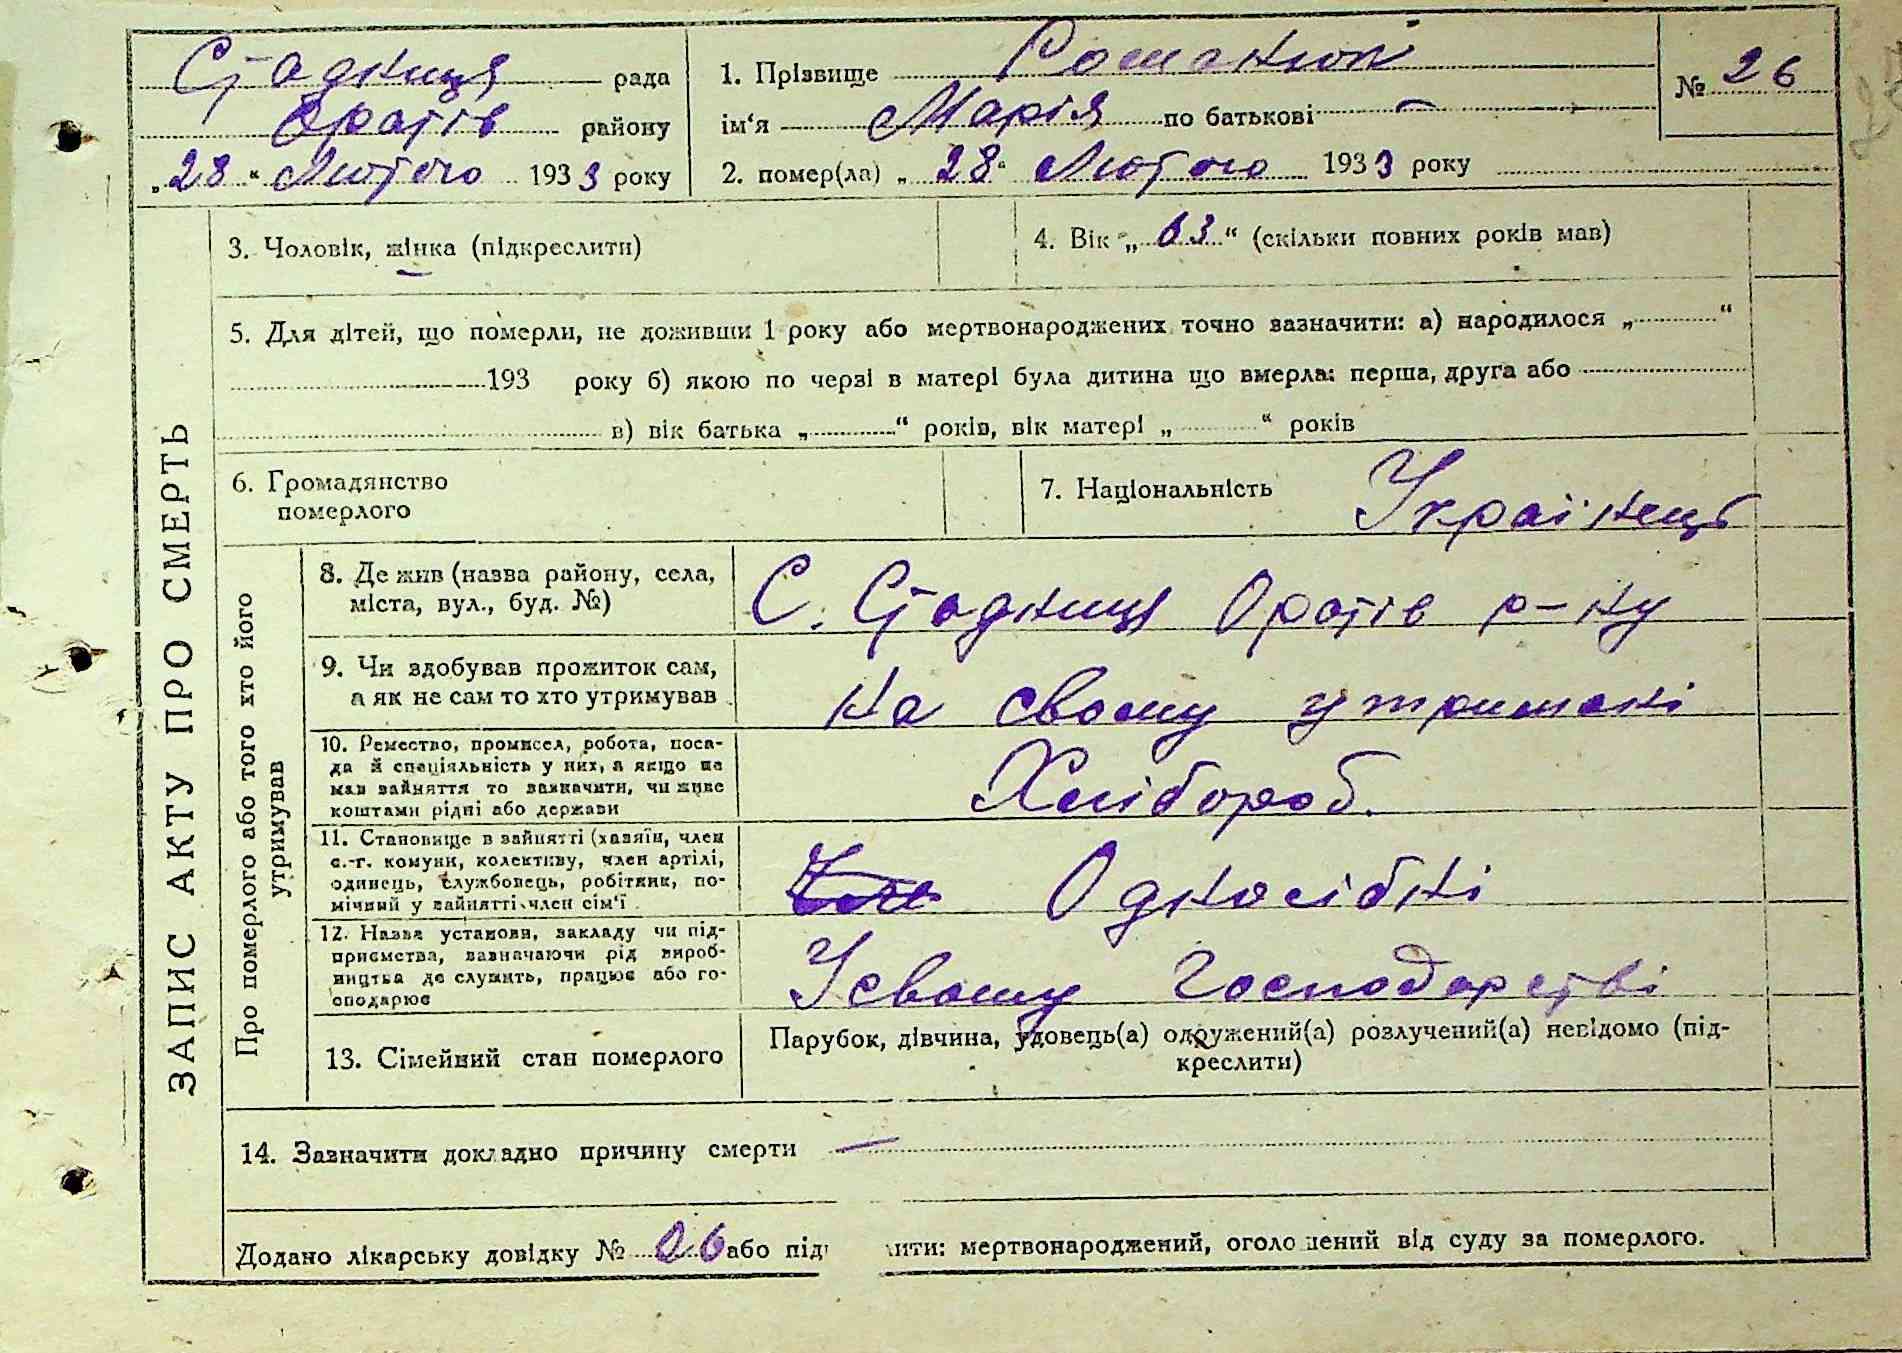 Стадниця рада
Оратів району
„28“ Лютого 1933 року
1. Прізвище Романюк
ім‘я Марія по батькові —
2. помер(ла) „28“ Лютого 1933 року
№ 26
ЗАПИС АКТУ ПРО СМЕРТЬ
3. Чоловік, жінка (підкреслити)
4. Вік „63“ (скільки повних років мав)
5. Для дітей, що померли, не доживши 1 року або мертвонароджених точно зазначити: а) народилося „ “
193 року б) якою по черзі в матері була дитина що вмерла: перша, друга або
в) вік батька „ “ років, вік матері „ “ років
6. Громадянство
померлого
7. Національність Українець
Про померлого або того хто його
утримував
8. Де жив (назва району, села,
міста, вул., буд. №)
С. Стадниця Оратів р-ну
9. Чи здобував прожиток сам,
а як не сам то хто утримував
На свому утримані
10. Ремество, промисел, робота, поса-
да й спеціяльність у них, а якщо не
мав зайняття то зазначити, чи живе
коштами рідні або держави
Хлібороб.
11. Становище в зайнятті (хазяїн, член
с.-г. комуни, колективу, член артілі,
одинець, службовець, робітник, по-
мічний у зайнятті член сім‘ї
Одноосібні
12. Назва установи, закладу чи під-
приємства, зазначаючи рід вироб-
ництва де служить, працює або го-
сподарює
У свому Господарстві
13. Сімейний стан померлого
Парубок, дівчина, удовець(а) одружений(а) розлучений(а) невідомо (під-
креслити)
14. Зазначити докладно причину смерти —
Додано лікарську довідку № 06 або під ити: мертвонароджений, оголошений від суду за померлого.